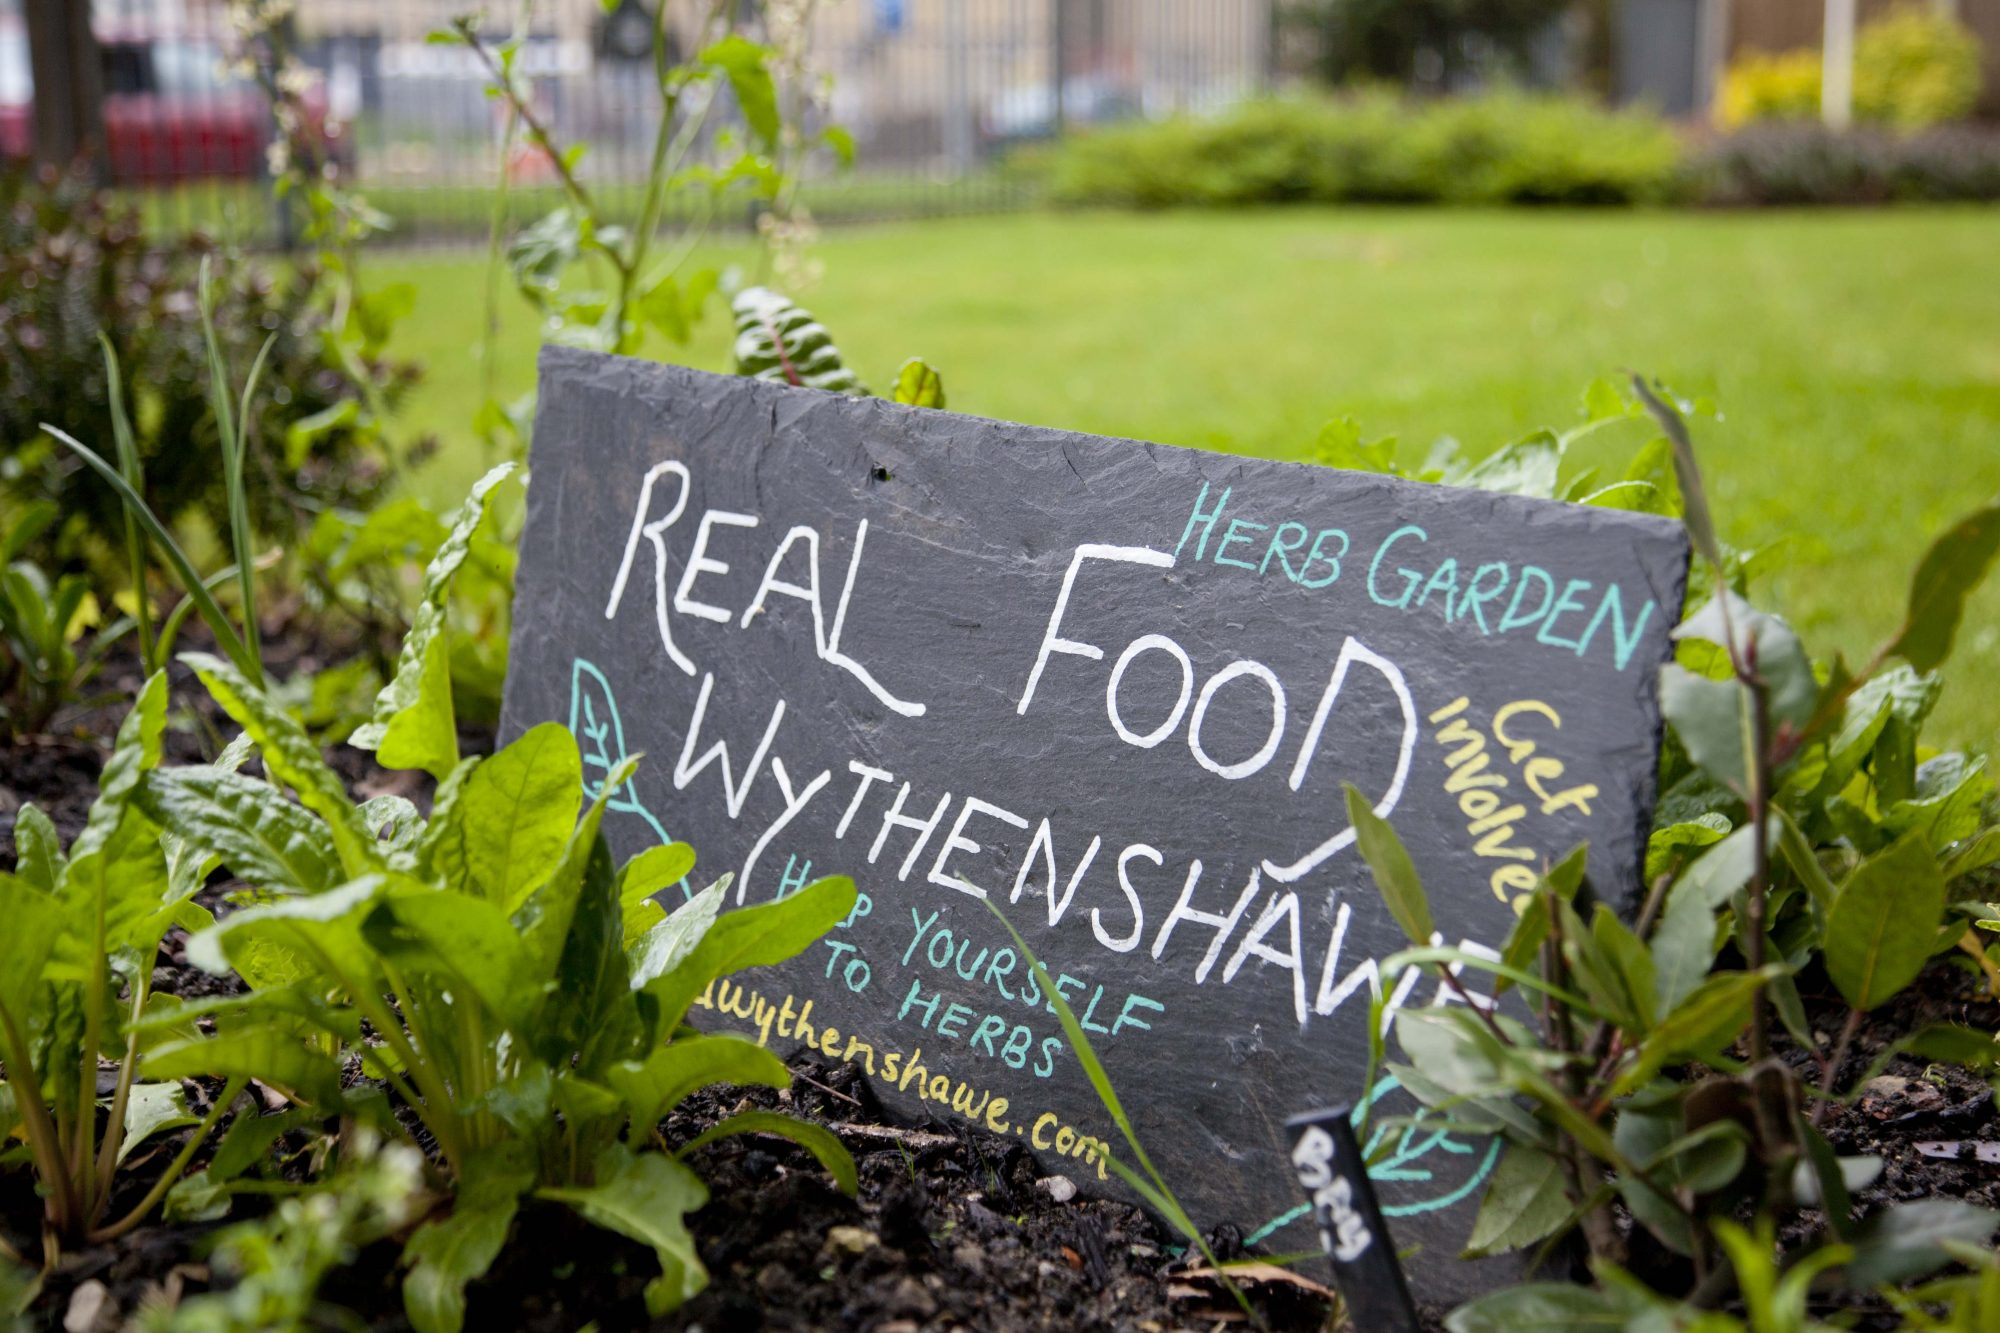 HERB GARDEN
REAL FOOD
WYTHENSHAWE
Get
involved
HELP YOURSELF
TO HERBS
wythenshawe.com
BAY